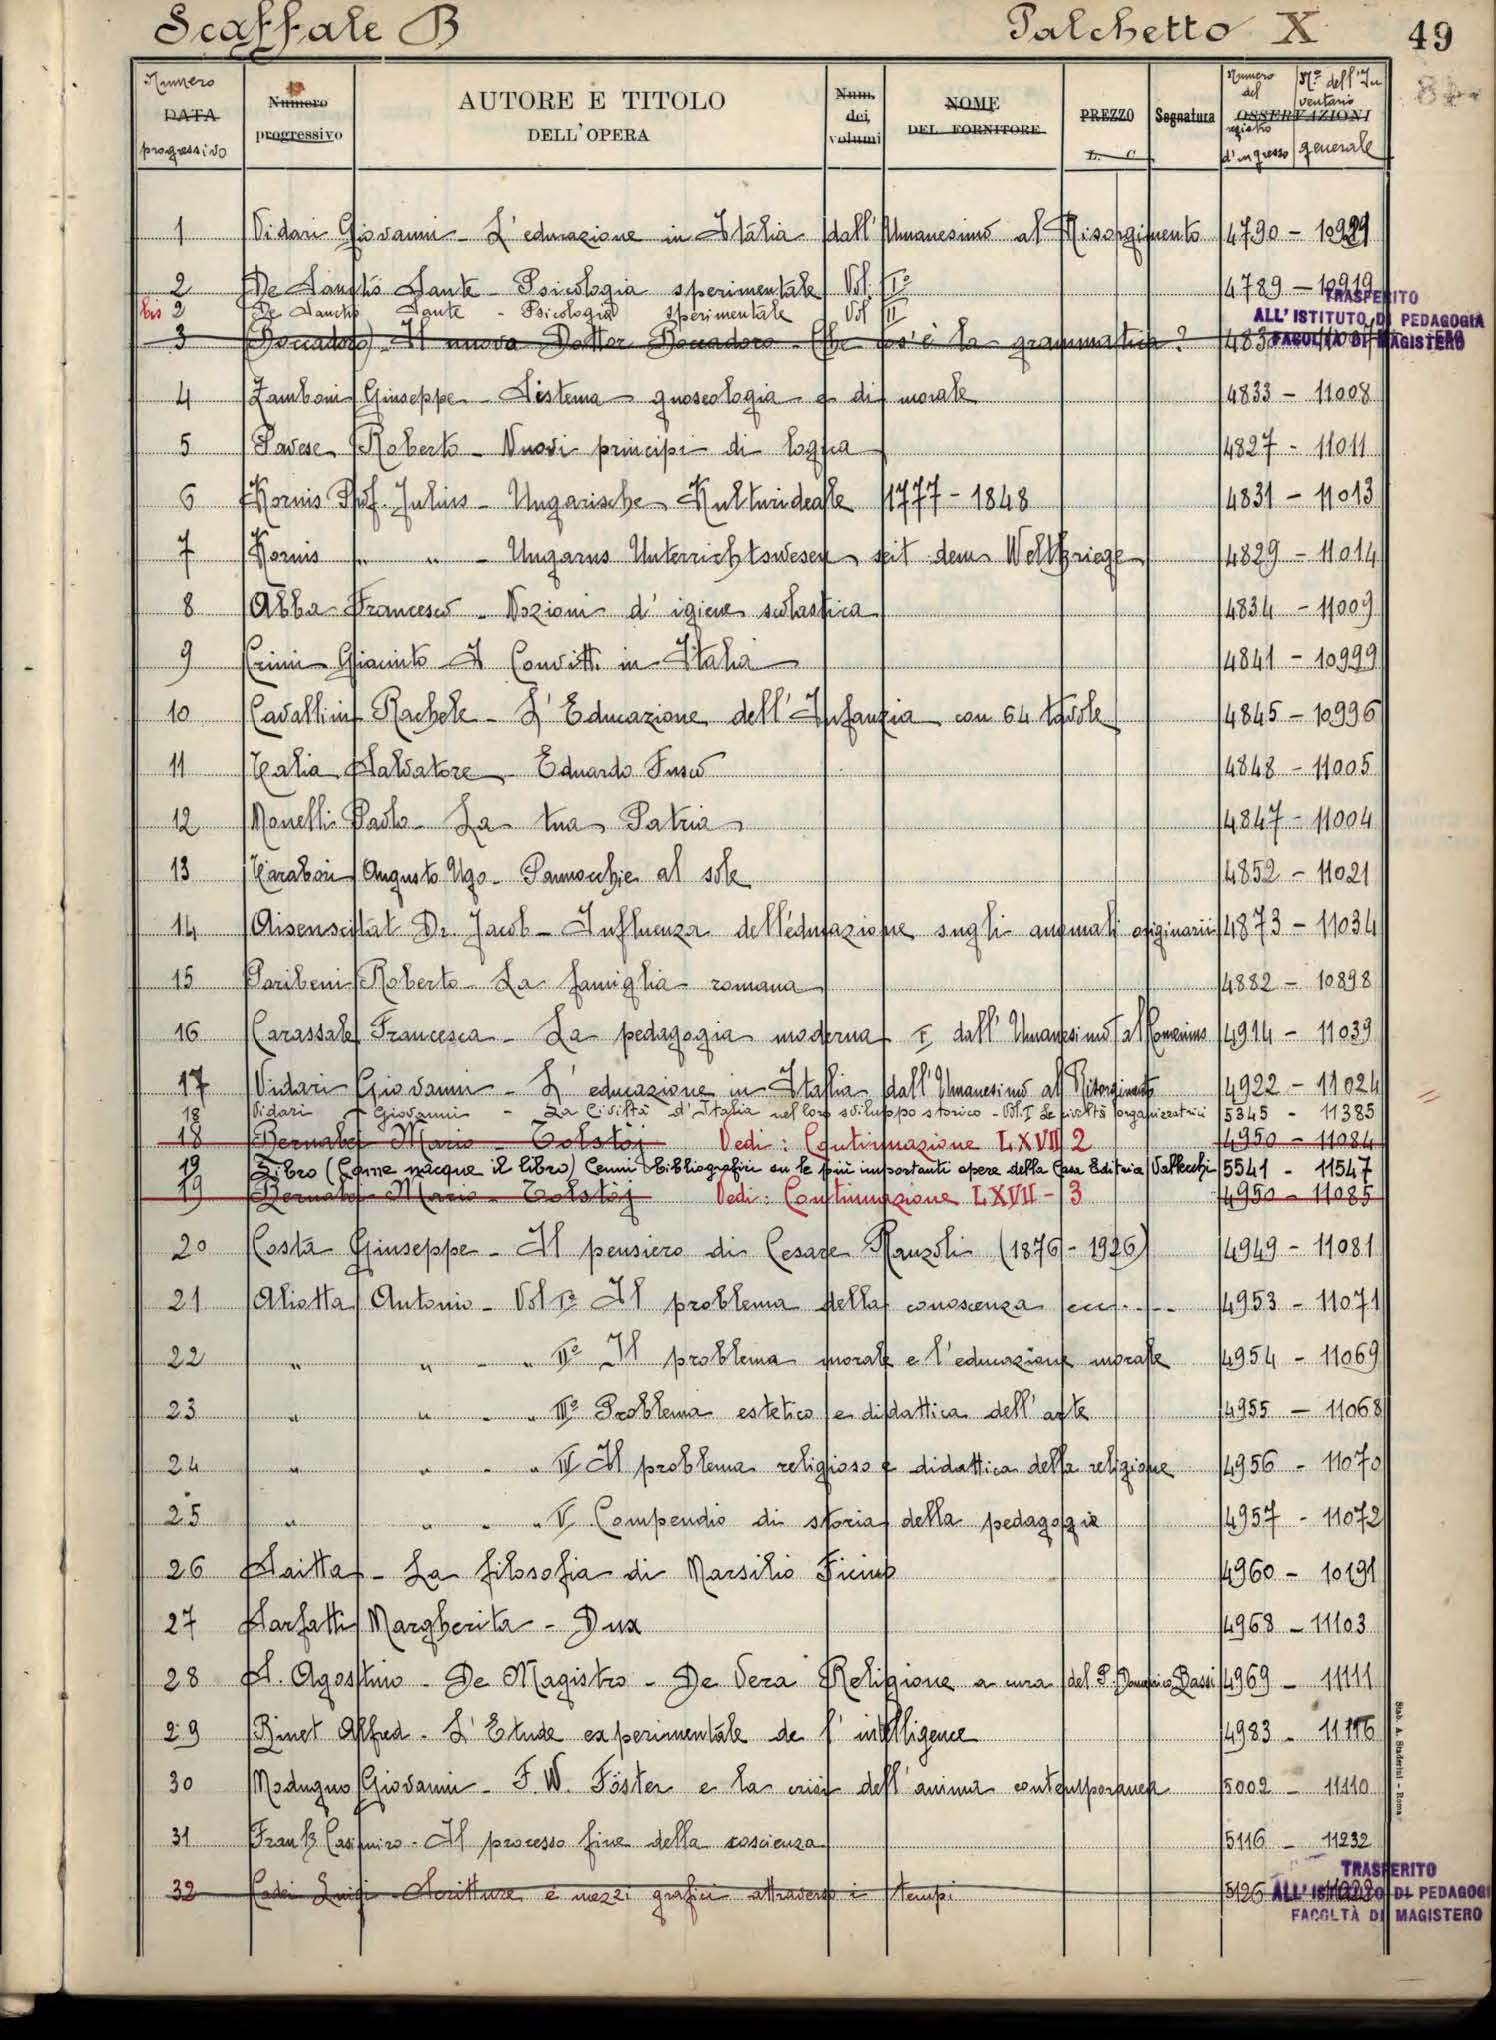 Scaffale B Palchetto X 49
Numero DATA progressivo
Numero progressivo
AUTORE E TITOLO DELL'OPERA
Num. dei volumi
NOME DEL FORNITORE
PREZZO L. C.
Segnatura
OSSERVAZIONI
Numero del registro d'ingresso
N.º dell'Inventario generale
1 Vidari Giovanni - L'educazione in Italia dall'Umanesimo al Risorgimento 4790 - 10929
2 De Sanctis Sante - Psicologia sperimentale Vol. Iº 4789 - 10919
bis 2 De Sanctis Sante - Psicologia sperimentale Vol II
TRASFERITO
ALL'ISTITUTO DI PEDAGOGIA
FACOLTÀ DI MAGISTERO
3 (Boccadoro) - Il nuovo Dottor Boccadoro - Che cos'è la grammatica?
4 Zamboni Giuseppe - Sistema gnoseologia e di morale 4833 - 11008
5 Pavese Roberto - Nuovi principi di logica 4827 - 11011
6 Kornis Prof. Julius - Ungarische Kulturideale 1777 - 1848 4831 - 11013
7 Kornis " " - Ungarns Unterrichtswesen seit dem Weltkriege 4829 - 11014
8 Abba Francesco - Nozioni d'igiene scolastica 4834 - 11009
9 Crimi Giacinto I Convitti in Italia 4841 - 10999
10 Cavallini Rachele - L'Educazione dell'Infanzia con 64 tavole 4845 - 10996
11 Talia Salvatore - Eduardo Fusco 4848 - 11005
12 Monelli Paolo - La tua Patria 4847 - 11004
13 Tarabori Augusto Ugo - Pannocchie al sole 4852 - 11021
14 Aisenscitat Dr. Jacob - Influenza dell'educazione sugli anomali originarii 4873 - 11034
15 Paribeni Roberto - La famiglia romana 4882 - 10898
16 Carassale Francesca - La pedagogia moderna I dall'Umanesimo al Comenius 4914 - 11039
17 Vidari Giovanni - L'educazione in Italia dall'Umanesimo al Risorgimento 4922 - 11024
18 Vidari Giovanni - La Civiltà d'Italia nel loro sviluppo storico - Vol. I Le civiltà organizzatrici 5345 - 11385
18 Bernabei Mario - Tolstòj Vedi: Continuazione LXVII 2 4950 - 11084
19 Libro (Come nacque il libro) Cenni bibliografici su le più importanti opere della Casa Editrice Vallecchi 5541 - 11547
19 Bernabei Mario - Tolstòj Vedi: Continuazione LXVII - 3 4950 - 11085
20 Costa Giuseppe - Il pensiero di Cesare Ranzoli (1876 - 1926) 4949 - 11081
21 Aliotta Antonio - Vol Iº Il problema della conoscenza ecc. 4953 - 11071
22 " " - " IIº Il problema morale e l'educazione morale 4954 - 11069
23 " " - " IIIº Problema estetico e didattica dell'arte 4955 - 11068
24 " " - " IV Il problema religioso e didattica della religione 4956 - 11070
25 " " - " V Compendio di storia della pedagogia 4957 - 11072
26 Saitta - La filosofia di Marsilio Ficino 4960 - 10191
27 Sarfatti Margherita - Dux 4968 - 11103
28 S. Agostino - De Magistro - De Vera Religione a cura del P. Domenico Bassi 4969 - 11111
29 Binet Alfred - L'Etude experimentale de l'intelligence 4983 - 11116
30 Modugno Giovanni - F. W. Föster e la crisi dell'anima contemporanea 5002 - 11110
31 Frank Casimiro - Il processo fine della coscienza 5116 - 11232
32 Cadei Luigi - Scritture e mezzi grafici attraverso i tempi 5126
TRASFERITO
ALL'ISTITUTO DI PEDAGOGI
FACOLTÀ DI MAGISTERO
Stab. A. Staderini - Roma